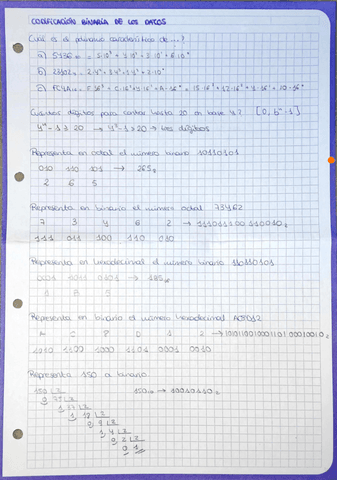 CODIFICACIÓN BINARIA DE LOS DATOS
Cuál es el polinomio característico de...?
a) 5436₁₀ = 5·10³ + 4·10² + 3·10¹ + 6·10⁰
b)
c)
Cuántos dígitos para contar hasta 20 en base 4? [0, bⁿ-1]
4ⁿ-1 ≥ 20 → 4³-1 ≥ 20 → tres dígitos
Representa en octal el número binario 10110101
010 110 101 → 265₈
2 6 5
Representa en binario el número octal 73462
7 3 4 6 2 → 111011100110010₂
111 011 100 110 010
Representa en hexadecimal el número binario 110110101
0001 1011 0101 → 1B5₁₆
1 B 5
Representa en binario el número hexadecimal
A C 8 D 1 2 → 101011001000110100010010₂
1010 1100 1000 1101 0001 0010
Representa 150 a binario
150 |2 150₁₀ → 10010110₂
0 75 |2
1 37 |2
1 18 |2
0 9 |2
1 4 |2
0 2 |2
0 1